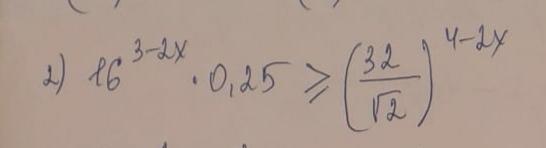 2) 16^{3-2x} · 0,25 ≥ (32/√2)^{4-2x}